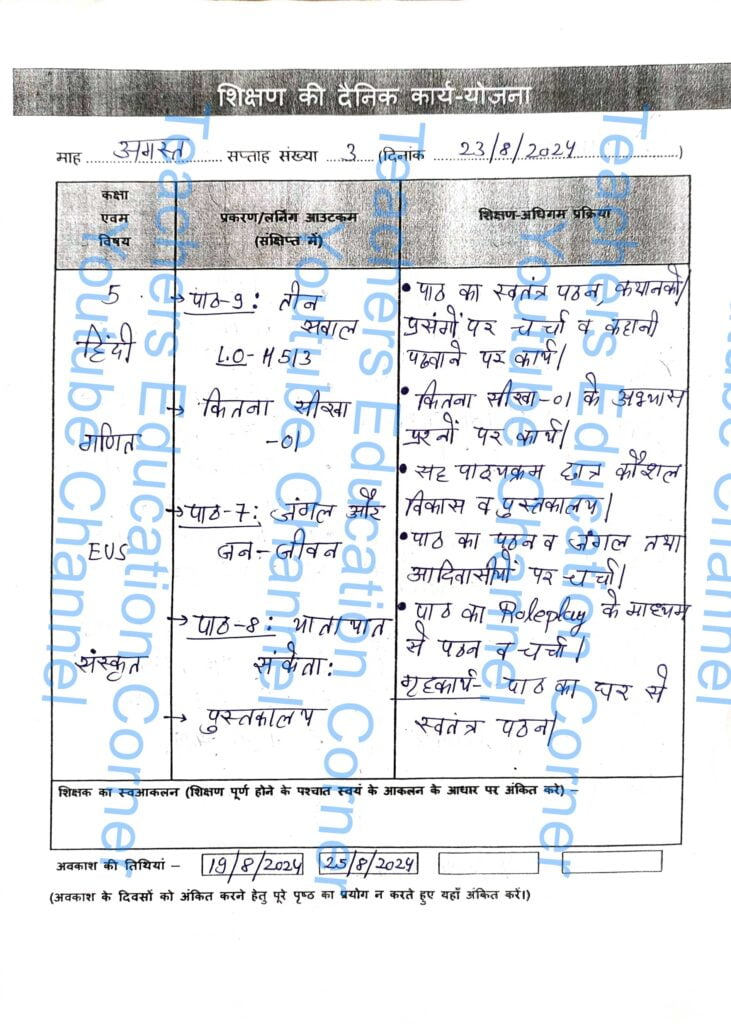 शिक्षण की दैनिक कार्य-योजना
माह अगस्त सप्ताह संख्या 3 (दिनांक 23/8/2024)
कक्षा
एवम
विषय
प्रकरण/लर्निंग आउटकम
(संक्षिप्त में)
शिक्षण-अधिगम प्रक्रिया
5
हिंदी
→ पाठ-9: तीन
सवाल
L.O-H513
• पाठ का स्वतंत्र पठन, कथानको/
प्रसंगों पर चर्चा व कहानी
पढवाने पर कार्य।
गणित
→ कितना सीखा
-01
• कितना सीखा-01 के अभ्यास
प्रश्नों पर कार्य।
• सह पाठ्यक्रम छात्र कौशल
विकास व पुस्तकालय।
EVS
→ पाठ-7: जंगल और
जन-जीवन
• पाठ का पठन व जंगल तथा
आदिवासीयों पर चर्चा।
संस्कृत
→ पाठ-8: यातायात
संकेता:
• पाठ का Roleplay के माध्यम
से पठन व चर्चा।
→ पुस्तकालय
गृहकार्य- पाठ का घर से
स्वतंत्र पठन।
शिक्षक का स्वआकलन (शिक्षण पूर्ण होने के पश्चात स्वयं के आकलन के आधार पर अंकित करे) –
अवकाश की तिथियां – 19/8/2024 25/8/2024
(अवकाश के दिवसों को अंकित करने हेतु पूरे पृष्ठ का प्रयोग न करते हुए यहाँ अंकित करें।)
Teachers Education Corner
Youtube Channel
Teachers Education Corner
Youtube Channel
Teachers Education Corner
Youtube Channel
Teachers
Youtube Channel